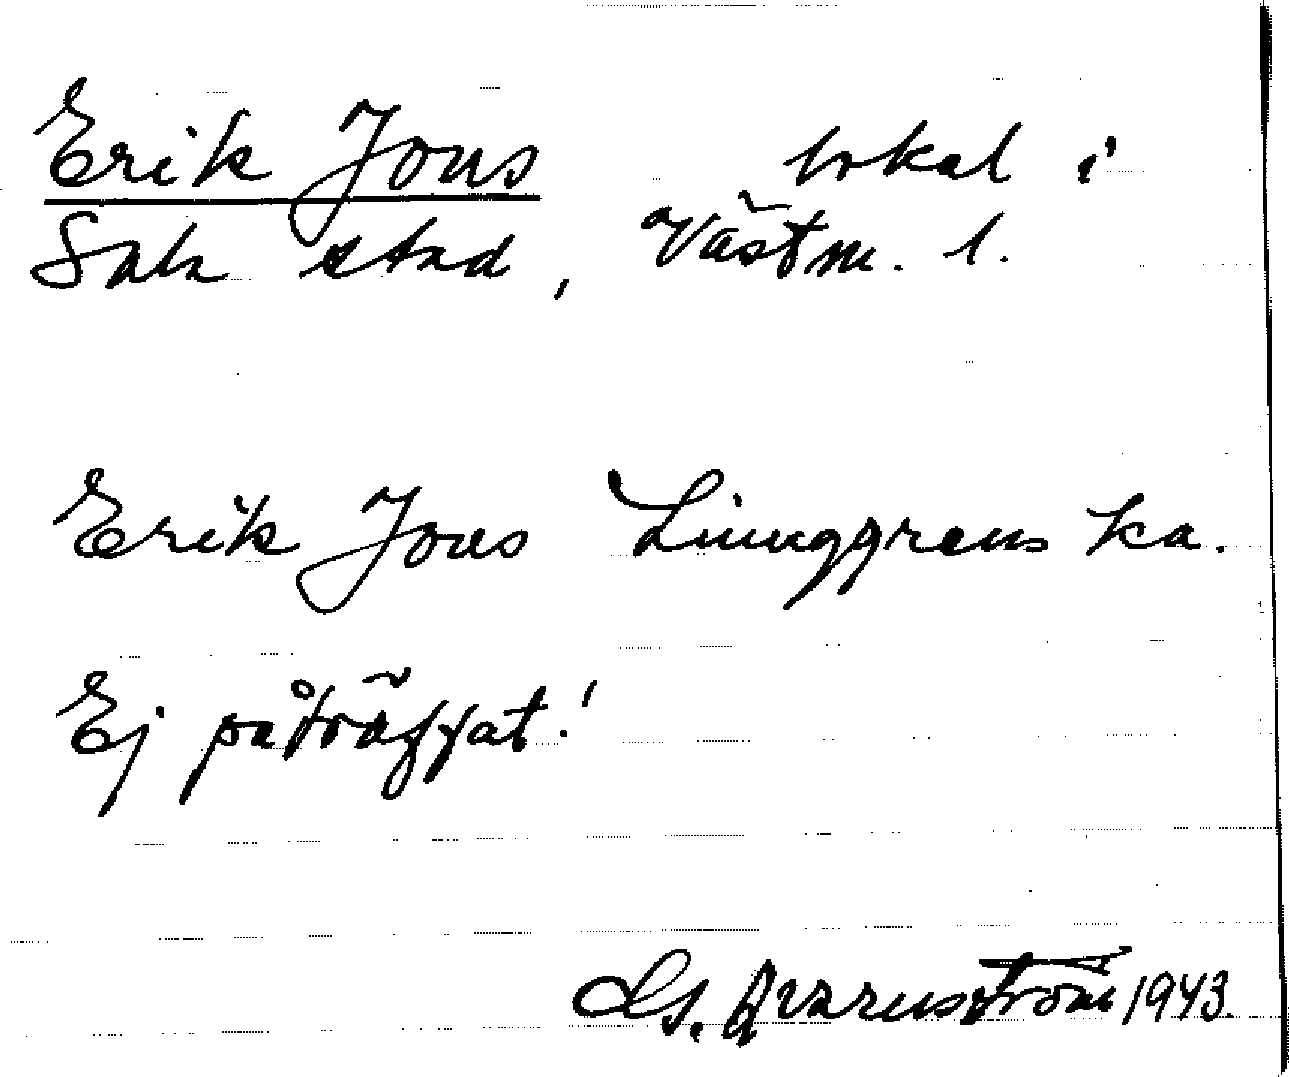 Erik Jons lokal i
Sala stad, Västm. l.
Erik Jons Ljunggrens ka.
Ej påträffat!
Qvarnström 1943.